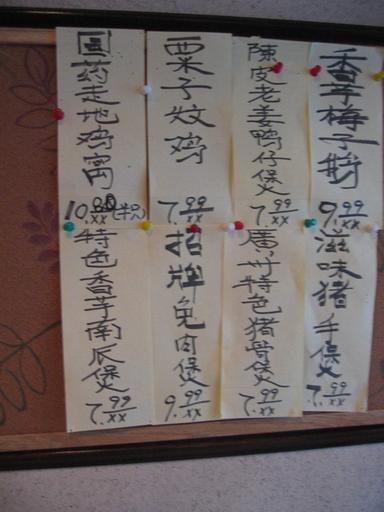 药走地鸡窝
栗子炆鸡
7.99/xx
陳皮老姜鴨仔煲
7.99/xx
香芋梅子
9.99/xx
特色香芋南瓜煲
7.99/xx
招牌兔肉煲
9.99/xx
廣州特色猪骨煲
7.99/xx
滋味猪手煲
7.99/xx